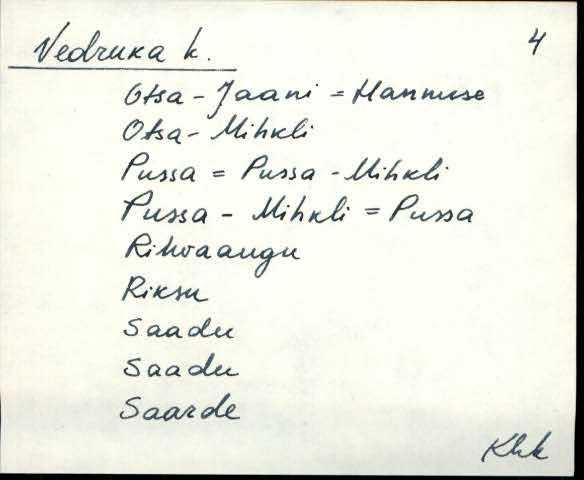 Vedruka k. 4
Otsa - Jaani = Mannuse
Otsa - Mihkli
Pussa = Pussa - Mihkli
Pussa - Mihkli = Pussa
Rihvaaugu
Riksu
Saadu
Saadu
Saarde
Khk